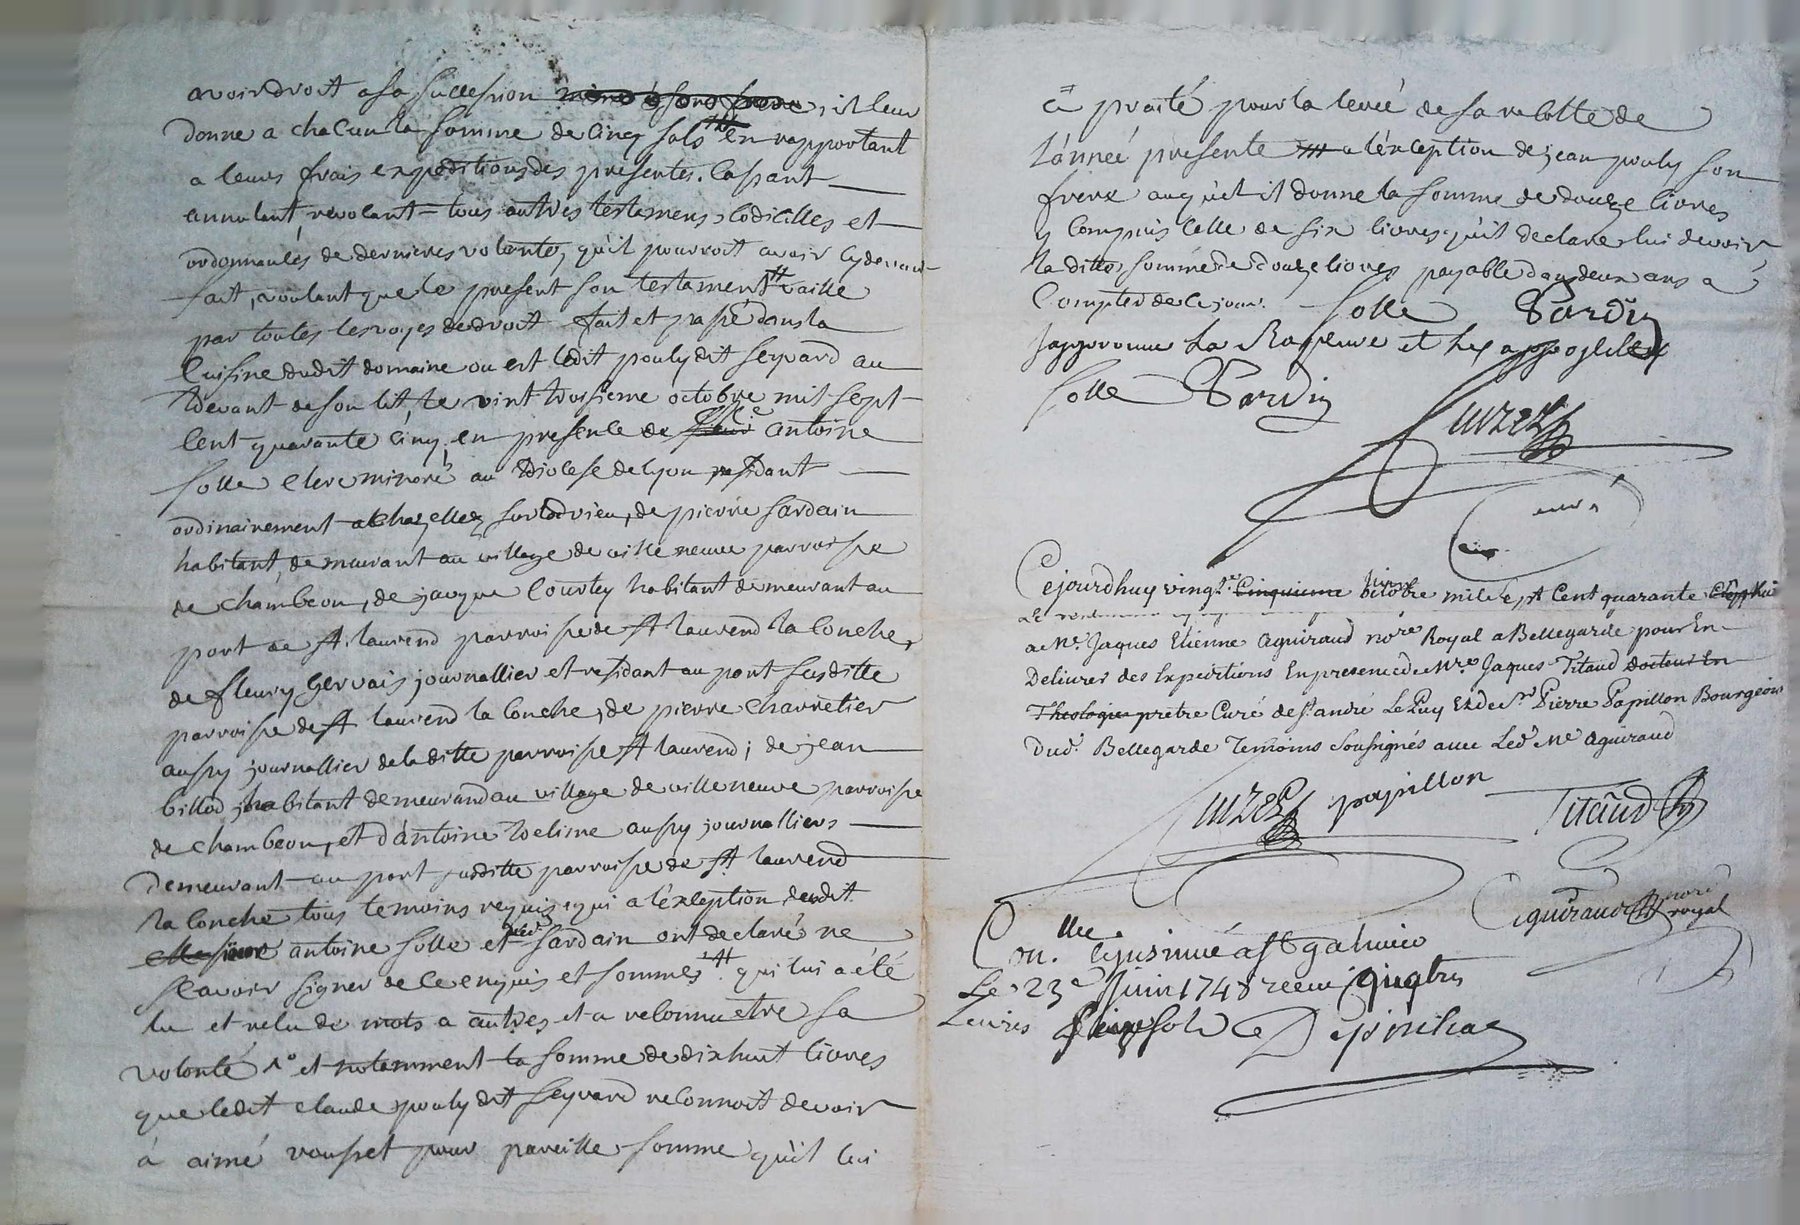 avoir droit a sa succession ; il leur
donne a chacun la somme de cinq sols en rapportant
a leurs frais expeditions des presentes. Cassant
annulant, revocant tous autres testamens, codicilles et
ordonnances de dernieres volontes, qu'il pourroit avoir cydevant
fait, voulant que le present son testament vaille
par toutes les voyes de droit fait et passé dans la
Cuisine dudit domaine ou est ledit pouly dit seyvard au
devant de son lit, le vint troisieme octobre mil sept
cent quarante cinq, en presence de antoine
solle clerc minoré au Diocese de lyon residant
ordinairement a chazelles sur lavieu, de pierre sardain
habitant, demeurant au village de ville neuve parroisse
de chambeon, de jacque Courtey habitant demeurant au
port de st laurend parroisse de st laurend la Conche,
de fleury gervais journallier et residant au port susditte
parroisse de st laurend la Conche, de pierre charretier
aussy journallier de la ditte parroisse st laurend ; de jean
billod habitant demeurand au village de villeneuve parroisse
de chambeon, et d'antoine aussy journalliers
demeurant au port susditte parroisse de st laurend
la Conche tous temoins requis qui a l'exception dudit
antoine solle et sardain ont declaré ne
scavoir signer de ce enquis et sommés qui lui a été
lu et relu de mots a autres et a reconnu etre sa
volonté et notamment la somme de dix huit livres
que ledit claude pouly dit seyvard reconnoit devoir
à aimé rousset pour pareille somme qu'il lui
a praité pour la levée de sa recolte de
l'année presente a l'exception de jean pouly son
frere auquel il donne la somme de douze livres
y compris celle de six livres qu'il declare lui devoir
la ditte somme de douze livres payable dans deux ans a
compter de ce jour. Solle Sardin
japprouve la Rayeure et les apostilles
Solle Sardin
curé
Cejourdhuy vingt Cinquieme mil sept Cent quarante
a Me Jaques Etienne Aguiraud nore Royal a Bellegarde pour En
Delivrer des Expeditions En presence de Mre Jaques Titaud Docteur En
Theologie pretre Curé de st andré Le Puy Et de sr Pierre Papillon Bourgeois
Dud. Bellegarde Temoins soussignés avec Led. Me Aguiraud
papillon Titaud
Aguiraud nore royal
Con.lle et insinué a St galmier
Le 23e Juin 1748 receu quatre
Livres sols